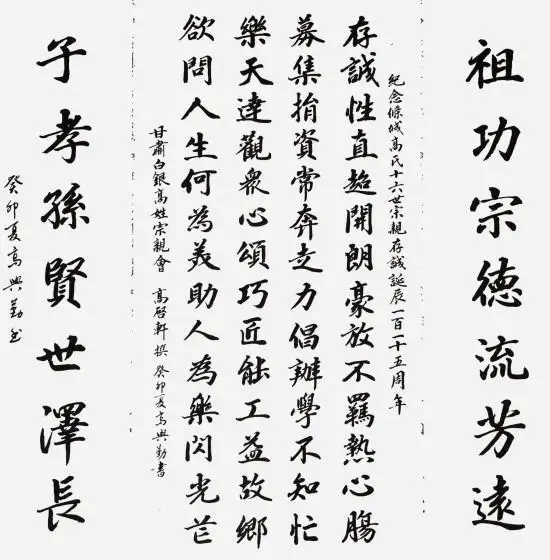 祖功宗德流芳遠
紀念條城高氏十六世宗親存誠誕辰一百二十五周年
存誠性直超開朗豪放不羈熱心腸
募集捐資常奔走力倡辦學不知忙
樂天達觀衆心頌巧匠能工益故鄉
欲問人生何為美助人為樂閃光芒
甘肅白銀高姓宗親會 高啓軒撰 癸卯夏高興勤書
子孝孫賢世澤長
癸卯夏高興勤書